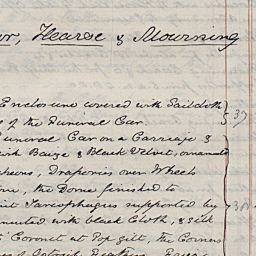 ar, Hearse & Mourning
Enclosure covered with Sailcloth
of the Funeral Car 37
Funeral Car on a Carriage &
with Baize & Black Velvet, ornament
cheons, Draperies over Wheels
the Dome finished to
Sarcophagus supported by
ornamented with black Cloth, & silk
Coronet at Top gilt, the Corners
of Ostrich Feathers